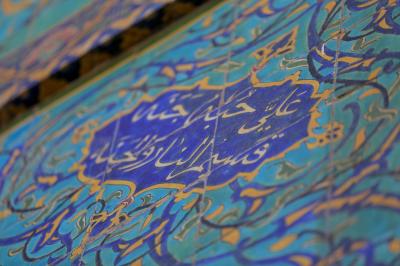 علي حبه جنة
قسيم النار والجنة